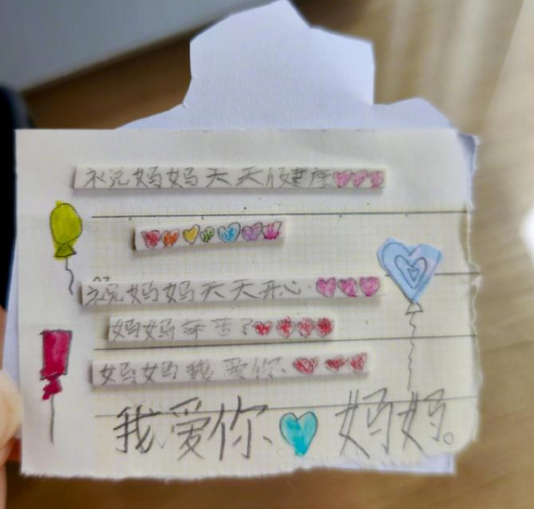 祝妈妈天天健康
祝妈妈天天开心
妈妈辛苦了
妈妈我爱你
我爱你 妈妈。